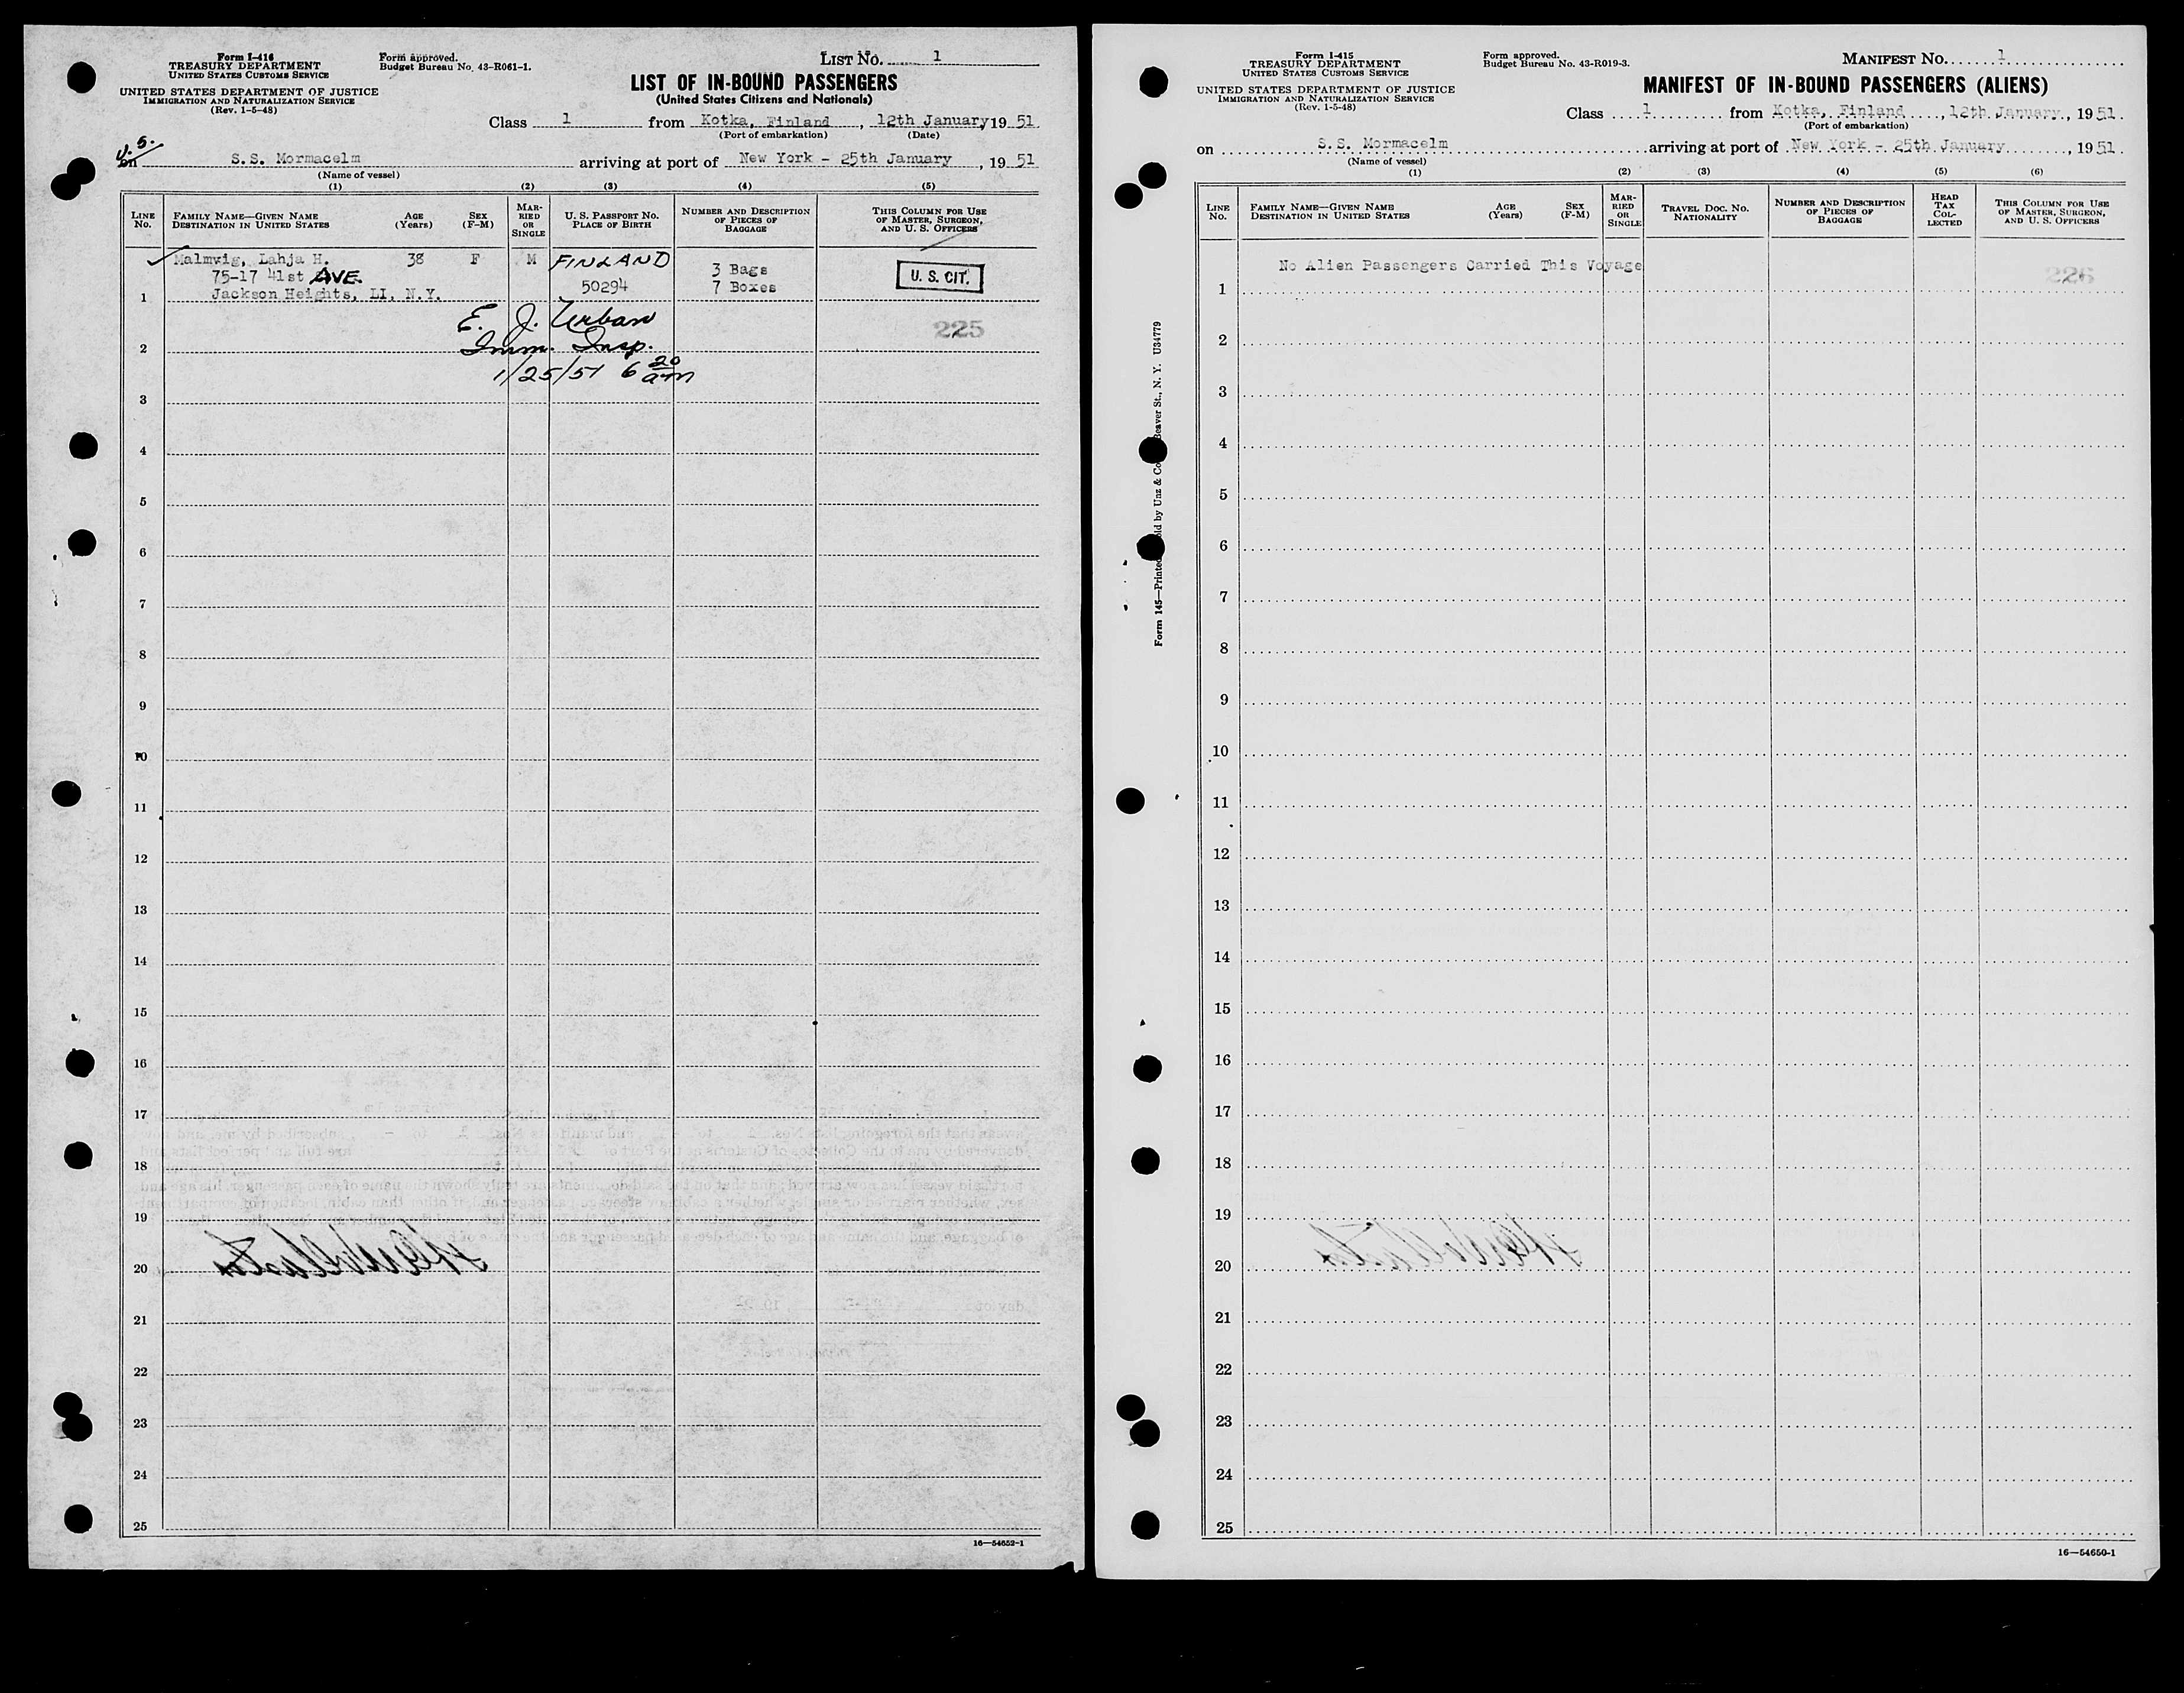 Form I-416
TREASURY DEPARTMENT
UNITED STATES CUSTOMS SERVICE
UNITED STATES DEPARTMENT OF JUSTICE
IMMIGRATION AND NATURALIZATION SERVICE
(Rev. 1-5-48)
Form approved.
Budget Bureau No. 43-R061-1.
LIST NO. 1
LIST OF IN-BOUND PASSENGERS
(United States Citizens and Nationals)
Class 1 from Kotka, Finland, 12th January, 19 51
(Port of embarkation) (Date)
U.S.
on S.S. Mormacelm arriving at port of New York - 25th January, 19 51
(Name of vessel)
(1) (2) (3) (4) (5)
LINE No. FAMILY NAME—GIVEN NAME DESTINATION IN UNITED STATES AGE (Years) SEX (F-M) MARRIED OR SINGLE U. S. PASSPORT NO. PLACE OF BIRTH NUMBER AND DESCRIPTION OF PIECES OF BAGGAGE THIS COLUMN FOR USE OF MASTER, SURGEON, AND U. S. OFFICERS
Malmvig, Lahja H. 38 F M FINLAND
75-17 41st AVE. 3 Bags U. S. CIT.
1 Jackson Heights, LI, N.Y. 50294 7 Boxes
E. J. Urban 225
2 Imm. Insp.
1/25/51 6 20 am
3
4
5
6
7
8
9
10
11
12
13
14
15
16
17
18
19
20
21
22
23
24
25
16—54652-1
Form I-415
TREASURY DEPARTMENT
UNITED STATES CUSTOMS SERVICE
UNITED STATES DEPARTMENT OF JUSTICE
IMMIGRATION AND NATURALIZATION SERVICE
(Rev. 1-5-48)
Form approved.
Budget Bureau No. 43-R019-3.
MANIFEST NO. 1
MANIFEST OF IN-BOUND PASSENGERS (ALIENS)
Class 1 from Kotka, Finland, 12th January, 19 51.
(Port of embarkation)
on S.S. Mormacelm arriving at port of New York - 25th January, 19 51.
(Name of vessel)
(1) (2) (3) (4) (5) (6)
LINE No. FAMILY NAME—GIVEN NAME DESTINATION IN UNITED STATES AGE (Years) SEX (F-M) MARRIED OR SINGLE TRAVEL DOC. NO. NATIONALITY NUMBER AND DESCRIPTION OF PIECES OF BAGGAGE HEAD TAX COLLECTED THIS COLUMN FOR USE OF MASTER, SURGEON, AND U. S. OFFICERS
No Alien Passengers Carried This Voyage 226
1
2
3
4
5
6
7
8
9
10
11
12
13
14
15
16
17
18
19
20
21
22
23
24
25
16—54650-1
Form 145—Printed by Unz & Co. Beaver St., N. Y. U34779